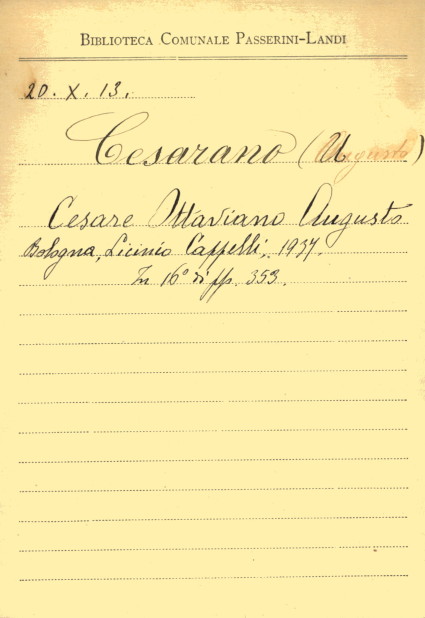 BIBLIOTECA COMUNALE PASSERINI-LANDI
20. X. 13.
Cesarano (Augusto)
Cesare Ottaviano Augusto
Bologna, Licinio Cappelli, 1937.
In 16° di pp. 353.